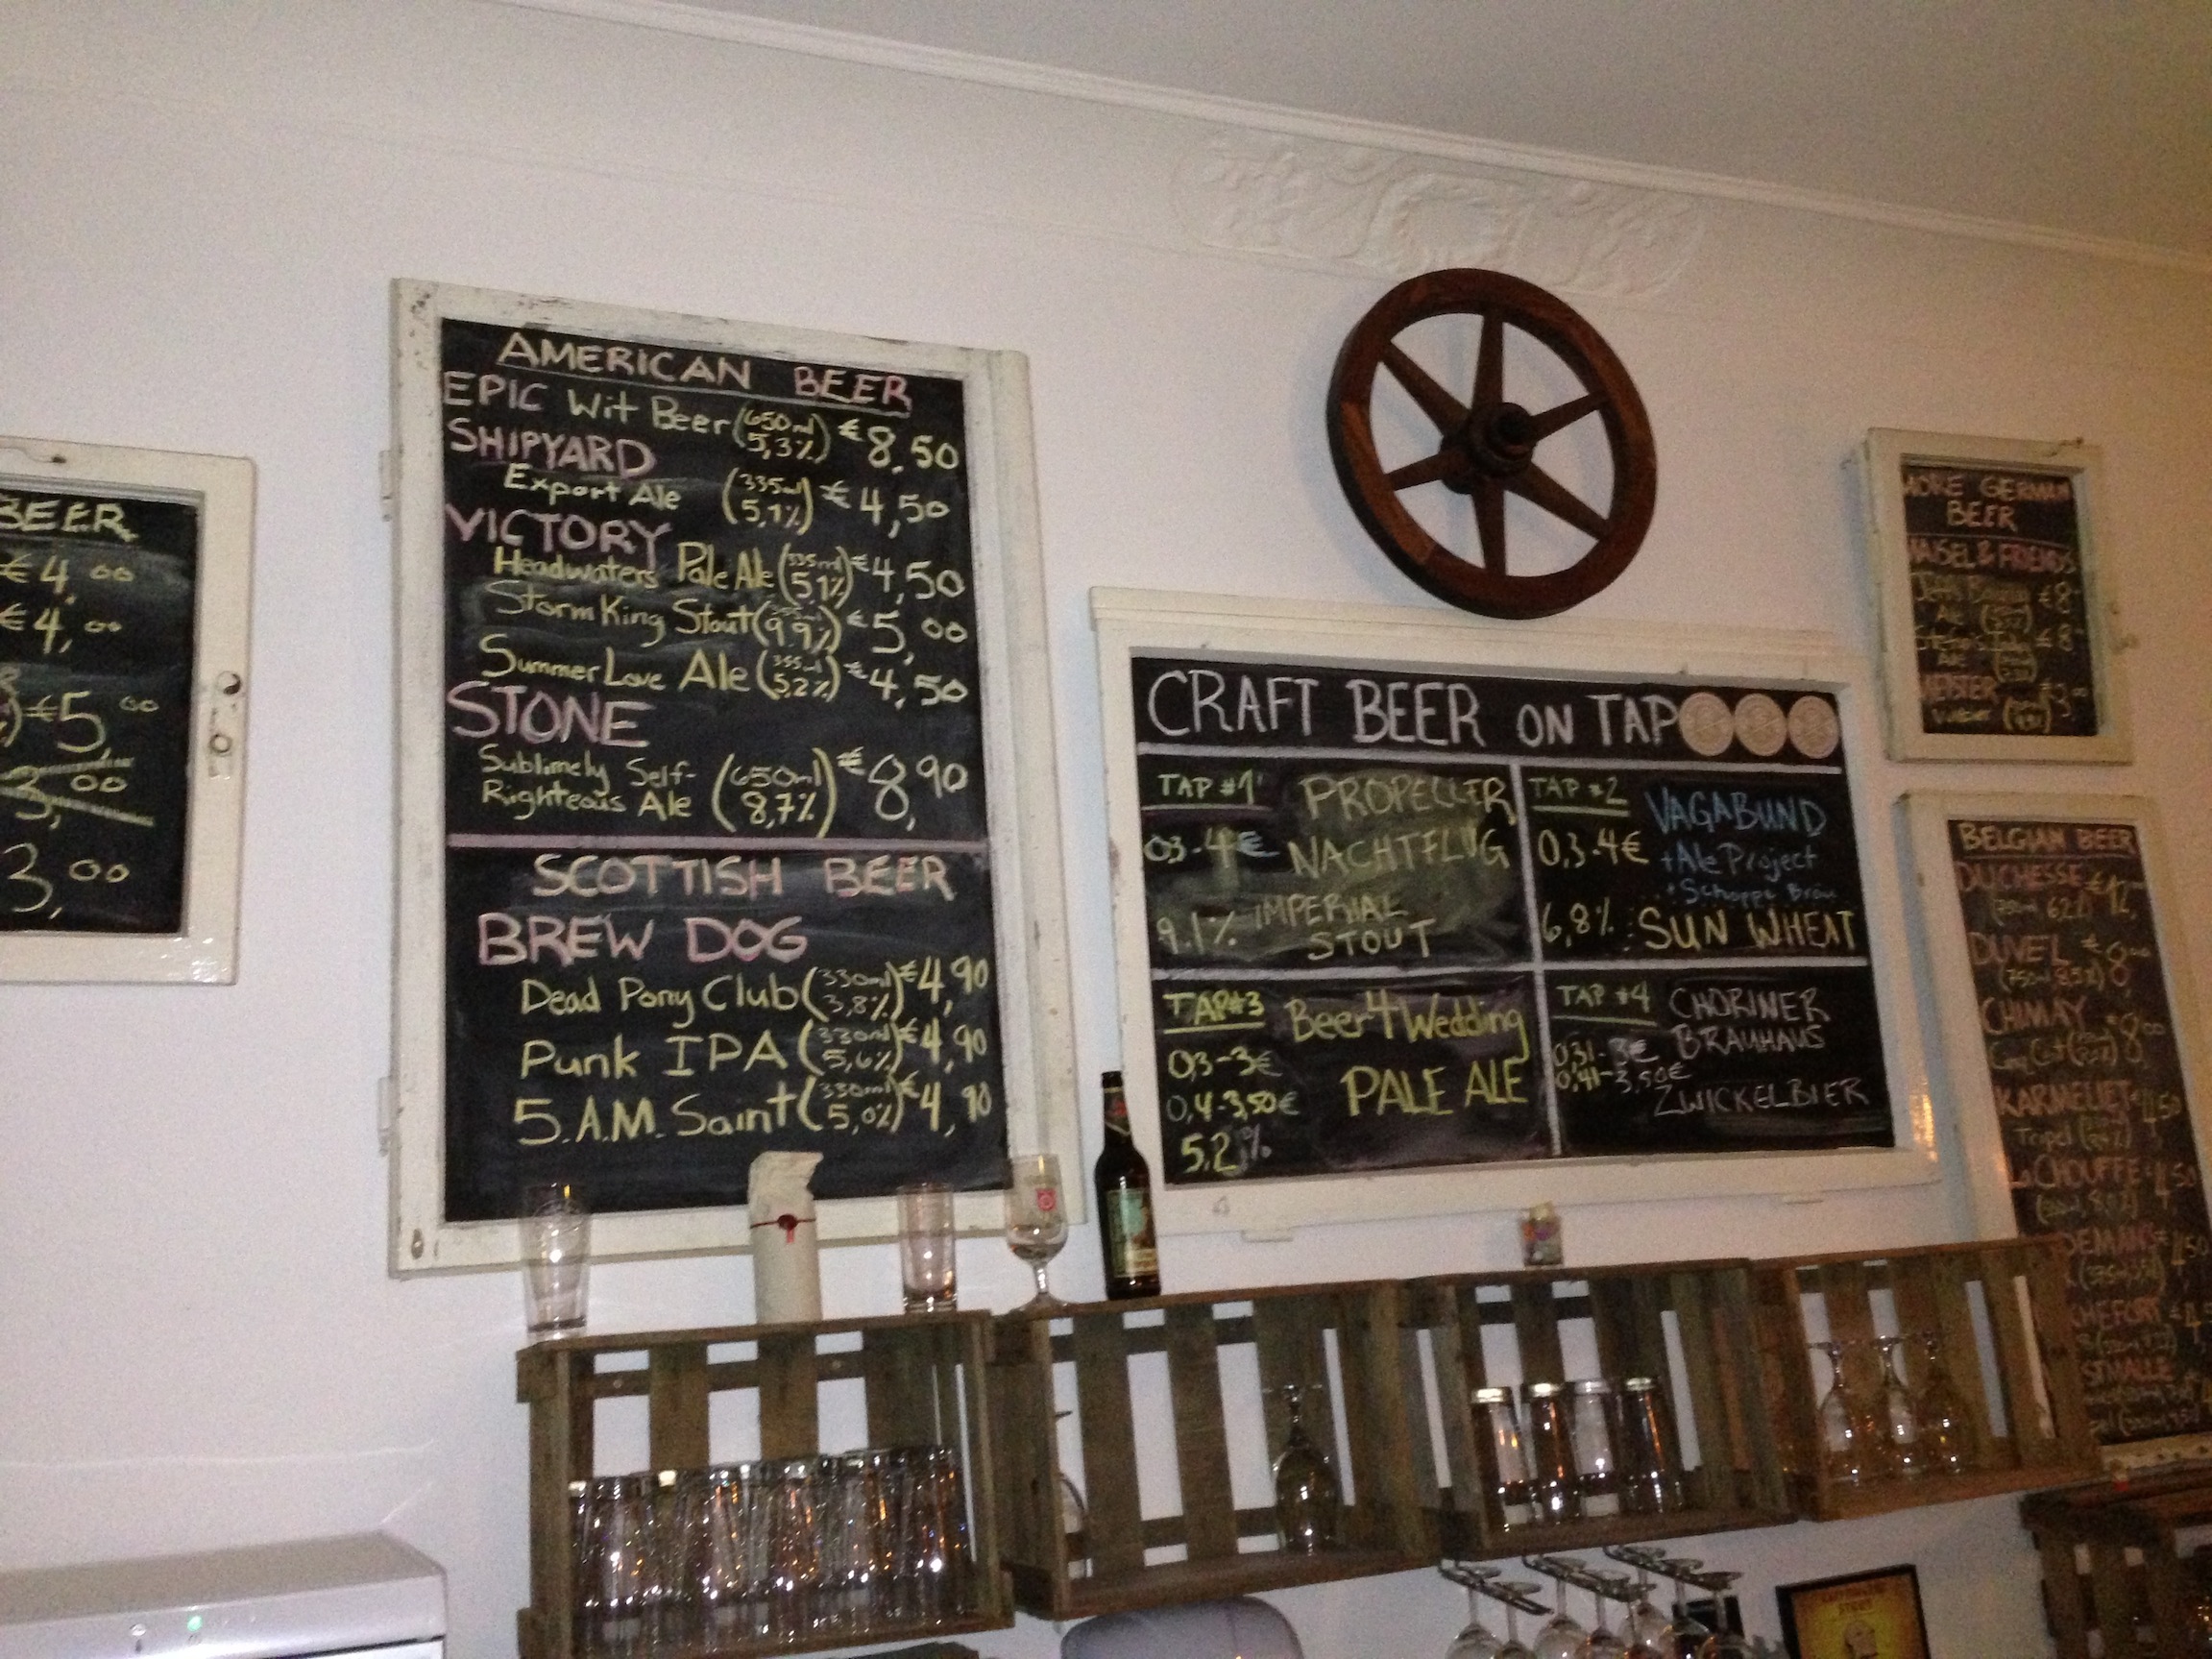 BEER
€4,00
€4,00
€5,00
3,00
3,00
AMERICAN BEER
EPIC Wit Beer (650ml 5,3%) €8,50
SHIPYARD
Export Ale (335ml 5,1%) €4,50
VICTORY
Headwaters Pale Ale (335ml 51%) €4,50
Storm King Stout (9,9%) €5,00
Summer Love Ale (355ml 5,2%) €4,50
STONE
Sublimely Self-
Righteous Ale (650ml 8,7%) €8,90
SCOTTISH BEER
BREW DOG
Dead Pony Club (330ml 3,8%) €4,90
Punk IPA (330ml 5,6%) €4,90
5.A.M. Saint (330ml 5,0%) €4,90
CRAFT BEER ON TAP
TAP #1 PROPELLER
03-4€ NACHTFLUG
9.1% IMPERIAL
STOUT
TAP #2 VAGABUND
0,3-4€ +Ale Project
+ Schoppe Bräu
6,8% SUN WHEAT
TAP #3 Beer4Wedding
0,3-3€
0,4-3,50€ PALE ALE
5,2%
TAP #4 CHORINER
0,31-3€ BRAUHAUS
0,41-3,50€
ZWICKELBIER
MORE GERMAN
BEER
MAISEL & FRIENDS
Ale
€8
Ale
€8
BELGIAN BEER
DUCHESSE
DUVEL
(750ml 8,5%)
CHIMAY
€8,00
KARMELIET 4,50
Tripel
LA CHOUFFE 4,50